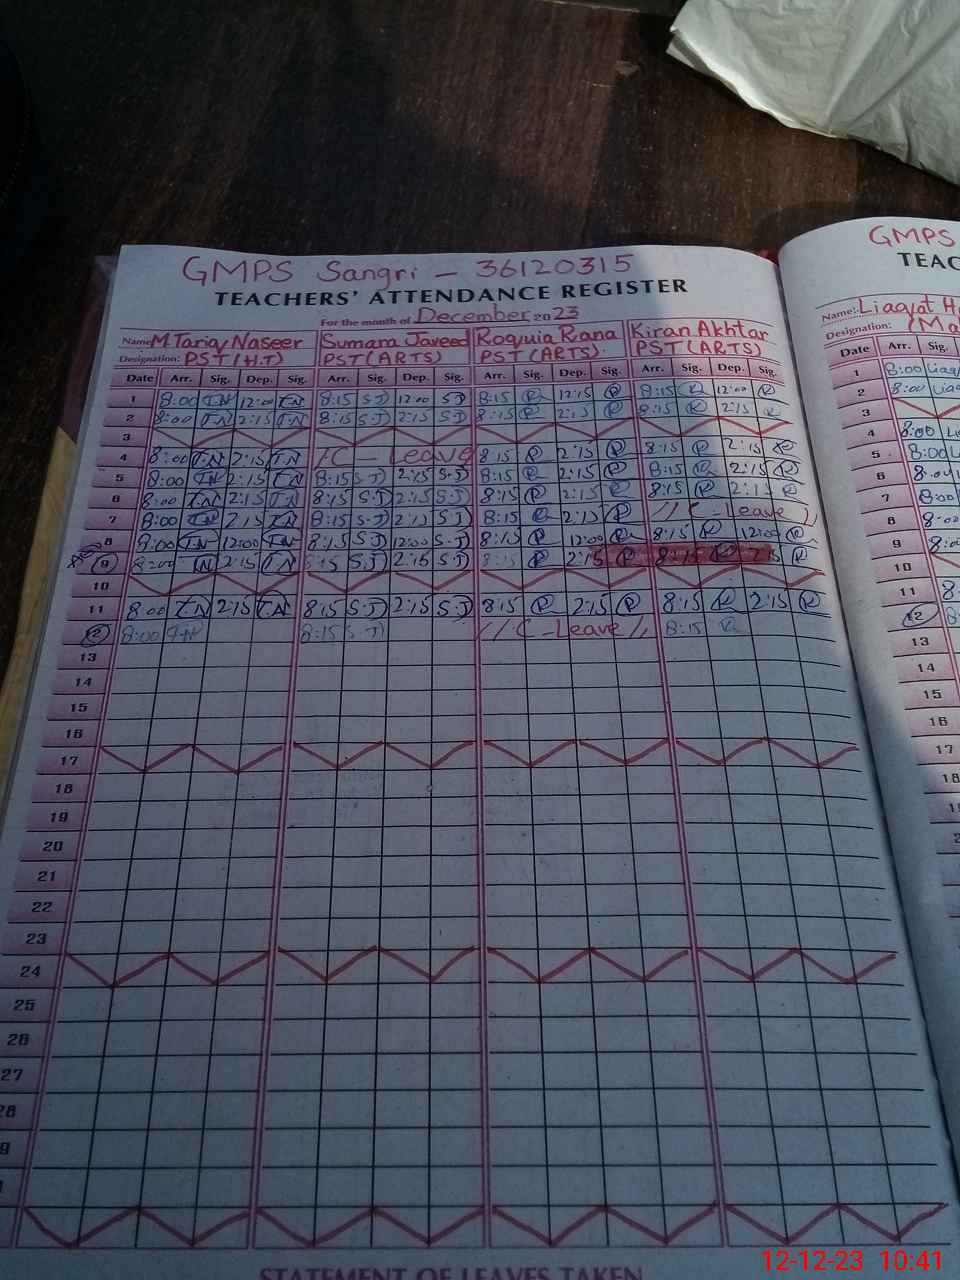 GMPS Sangri - 36120315
TEACHERS' ATTENDANCE REGISTER
For the month of December 2023
Name M Tariq Naseer Sumara Javeed Roquia Rana Kiran Akhtar
Designation: PST (H.T) PST (ARTS) PST (ARTS) PST (ARTS)
Date Arr. Sig. Dep. Sig. Arr. Sig. Dep. Sig. Arr. Sig. Dep. Sig. Arr. Sig. Dep. Sig.
1 8:00 T.N 12:00 T.N 8:15 S.J 12:00 S.J 8:15 R 12:15 R 8:15 R 12:00 R
2 8:00 T.N 2:15 T.N 8:15 S.J 2:15 S.J 8:15 R 2:15 R 8:15 R 2:15 R
3
4 8:00 T.N 2:15 T.N C - Leave 8:15 R 2:15 R 8:15 R 2:15 R
5 8:00 T.N 2:15 T.N 8:15 S.J 2:15 S.J 8:15 R 2:15 R 8:15 R 2:15 R
6 8:00 T.N 2:15 T.N 8:15 S.J 2:15 S.J 8:15 R 2:15 R 8:15 R 2:15 R
7 8:00 T.N 2:15 T.N 8:15 S.J 2:15 S.J 8:15 R 2:15 R // C - Leave //
8 8:00 T.N 12:00 T.N 8:15 S.J 12:00 S.J 8:15 R 12:00 R 8:15 R 12:00 R
9 8:00 T.N 2:15 T.N 8:15 S.J 2:15 S.J 8:15 R 2:15 R 8:15 R 2:15 R
10
11 8:00 T.N 2:15 T.N 8:15 S.J 2:15 S.J 8:15 R 2:15 R 8:15 R 2:15 R
12 8:00 T.N 8:15 S.J // C - Leave // 8:15 R
13
14
15
16
17
18
19
20
21
22
23
24
25
26
27
28
STATEMENT OF LEAVES TAKEN
GMPS
TEAC
Name: Liaqat H
Designation: (Ma
Date Arr. Sig.
1 8:00 Liaq
2 8:00 Liaq
3
4 8:00 Li
5 8:00 L
6 8:00
7 8:00
8 8:00
9 8:00
10
11 8:
12 8
13
14
15
16
17
18
12-12-23 10:41